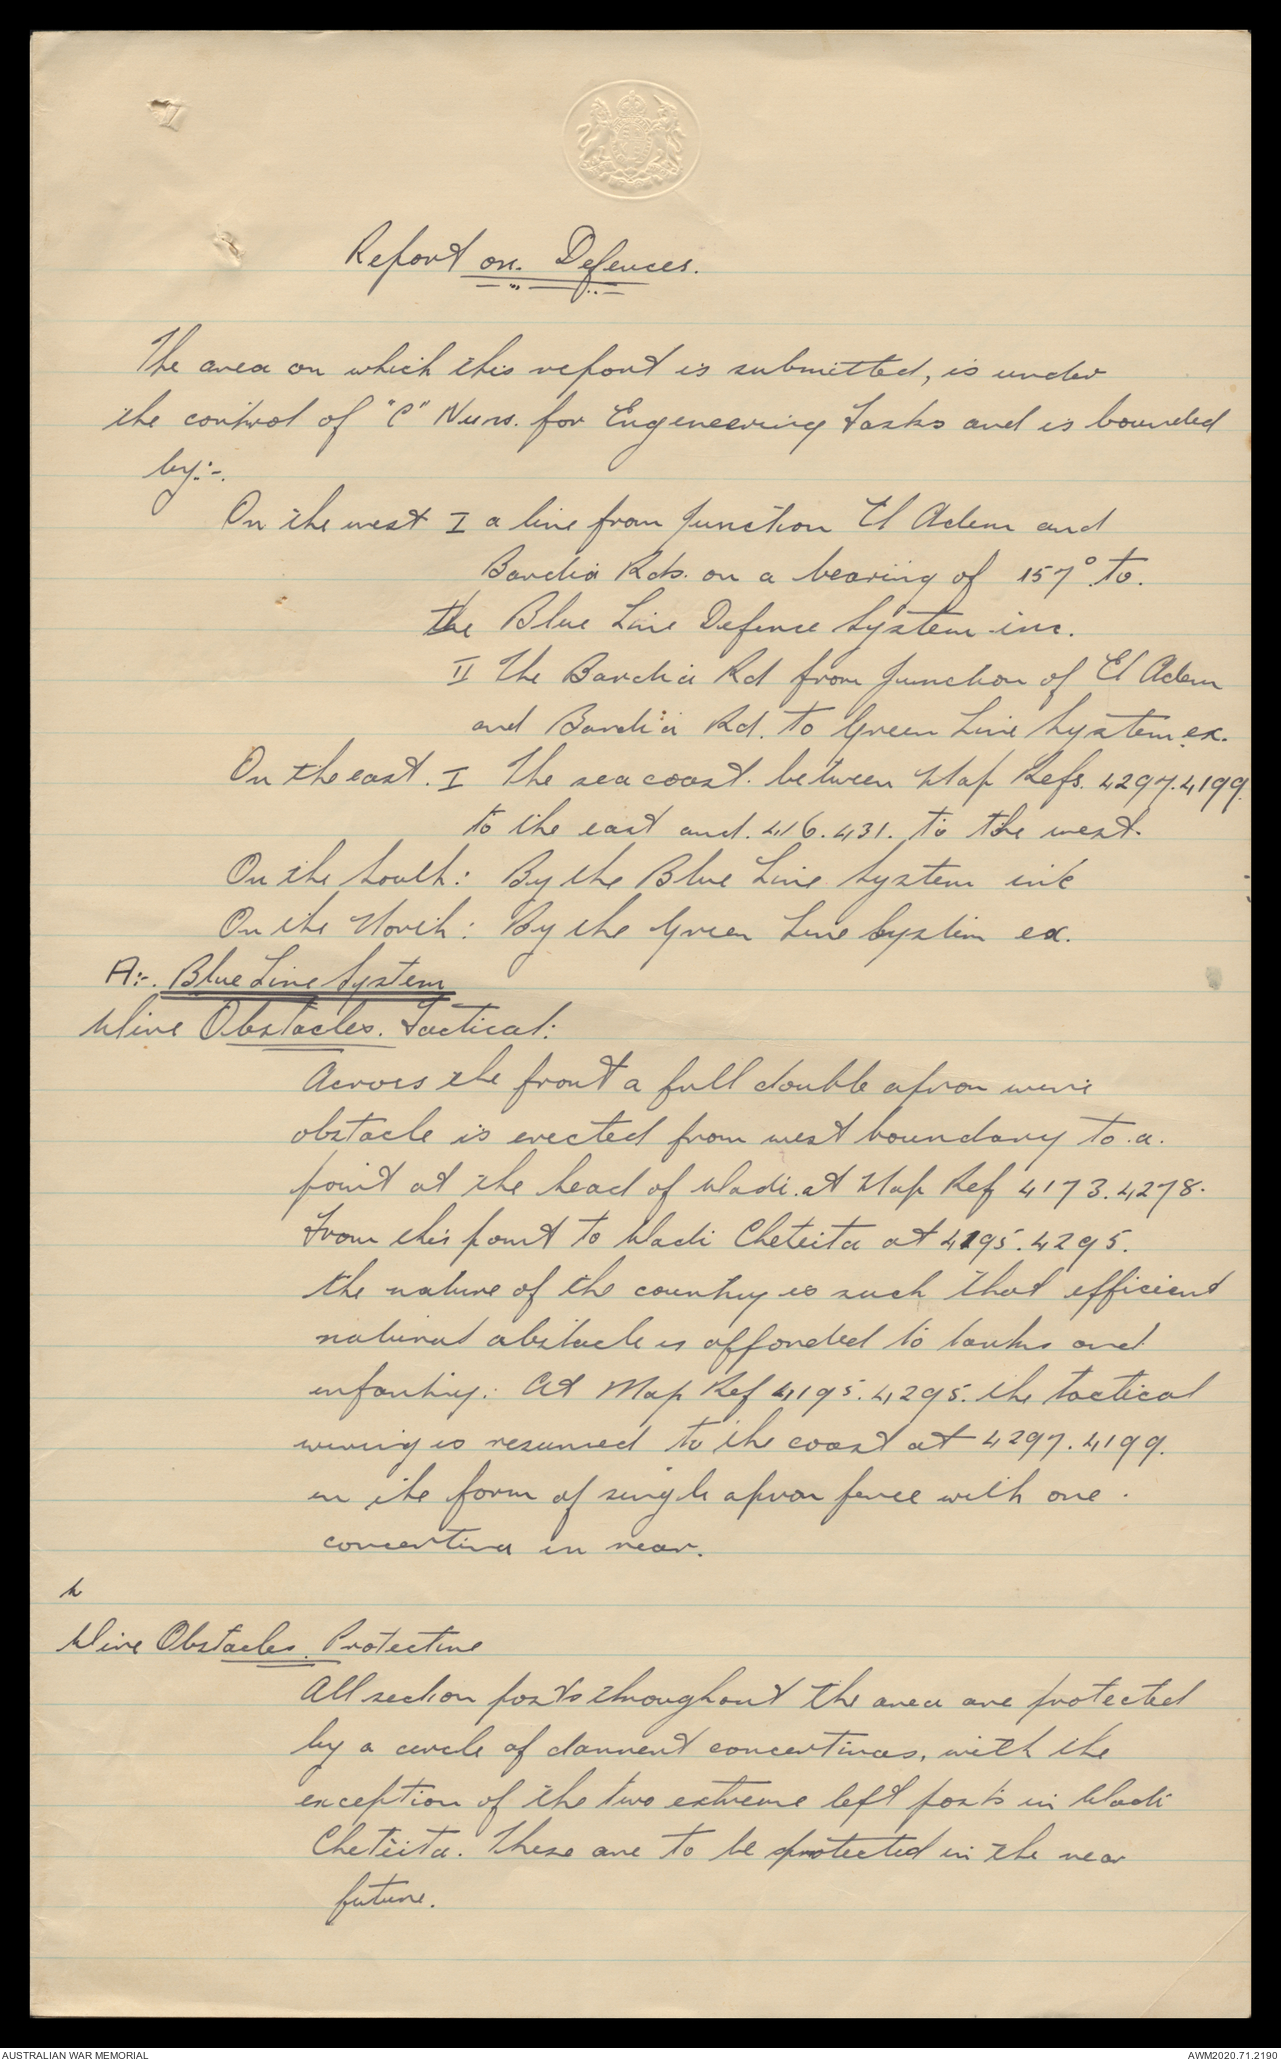 Report on Defences.
The area on which this report is submitted, is under
the control of "C" for Engeneering Tasks and is bounded
by:-.
On the west I a line from junction El Adem and
Bardia Rds. on a bearing of 157° to.
the Blue Line Defence System inc.
II The Bardia Rd from junction of El Adem
and Bardia Rd. to Green Line System ex.
On the east. I The sea coast. between Map Refs. 4297.4199
to the east and. 416.431. to the west.
On the South: By the Blue Line System inc
On the North: By the Green Line System ex.
A:-. Blue Line System
Wire Obstacles. Tactical:
Across the front a full double apron wire
obstacle is erected from west boundary to.a.
point at the head of Wadi. at Map Ref 4173.4278.
From this point to Wadi Cheteita at 4195.4295.
the nature of the country is such that efficient
natural obstacle is afforded to tanks and
infantry: At Map Ref 4195.4295. the tactical
wiring is resumed to the coast at 4297.4199.
in the form of single apron fence with one.
concertina in rear.
Wire Obstacles. Protective
All section posts throughout the area are protected
by a circle of dannert concertinas, with the
exception of the two extreme left posts in Wadi
Cheteita. These are to be protected in the near
future.
AUSTRALIAN WAR MEMORIAL
AWM2020.71.2190